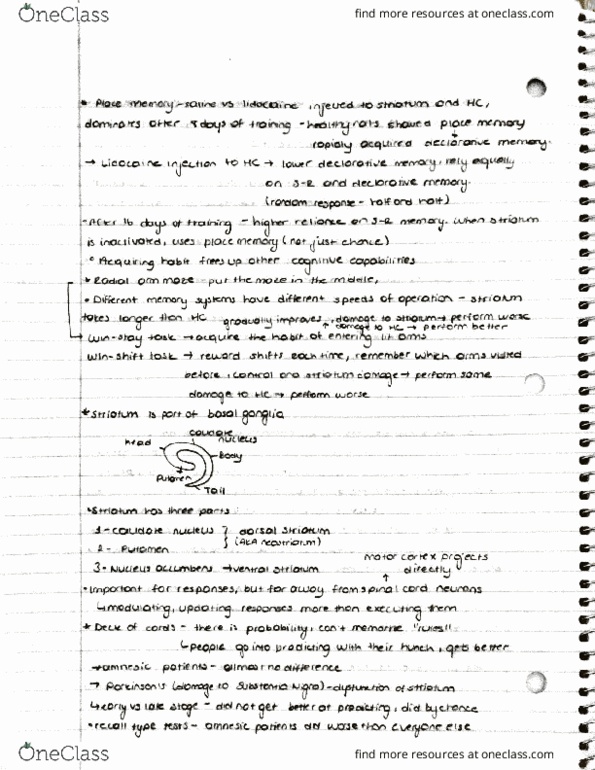 OneClass
find more resources at oneclass.com
* Place memory - saline vs lidocaine injected to striatum and HC,
dominates after 8 days of training - healthy rats showed place memory
rapidly acquired declarative memory.
→ Lidocaine injection to HC → lower declarative memory, rely equally
on S-R and declarative memory.
(random response - half and half)
- After 16 days of training - higher reliance on S-R memory. When striatum
is inactivated, uses place memory (not just chance)
° Acquiring habit frees up other cognitive capabilities
* Radial arm maze - put the maze in the middle,
• Different memory systems have different speeds of operation - striatum
takes longer than HC gradually improves, damage to striatum → perform worse
↑ damage to HC → perform better
→ Win-stay task → acquire the habit of entering lit arms
Win-shift task → reward shifts each time, remember which arms visited
before, control and striatum damage → perform same
damage to HC → perform worse
* Striatum is part of basal ganglia
caudate
nucleus
head
Body
Putamen
Tail
• Striatum has three parts
1 - caudate nucleus } dorsal striatum
2 - Putamen (AKA neostriatum)
3 - Nucleus accumbens → ventral striatum
motor cortex projects
↑ directly
• Important for responses, but far away from spinal cord neurons
↳ modulating, updating responses more than executing them
* Deck of cards - there is probability, can't memorize "rules"
↳ people go into predicting with their hunch, gets better
→ amnesic patients - almost no difference
→ Parkinson's (damage to Substantia Nigra) - dysfunction of striatum
↳ early vs late stage - did not get better at predicting, did by chance
• recall type tests - amnesic patients did worse than everyone else
OneClass
find more resources at oneclass.com